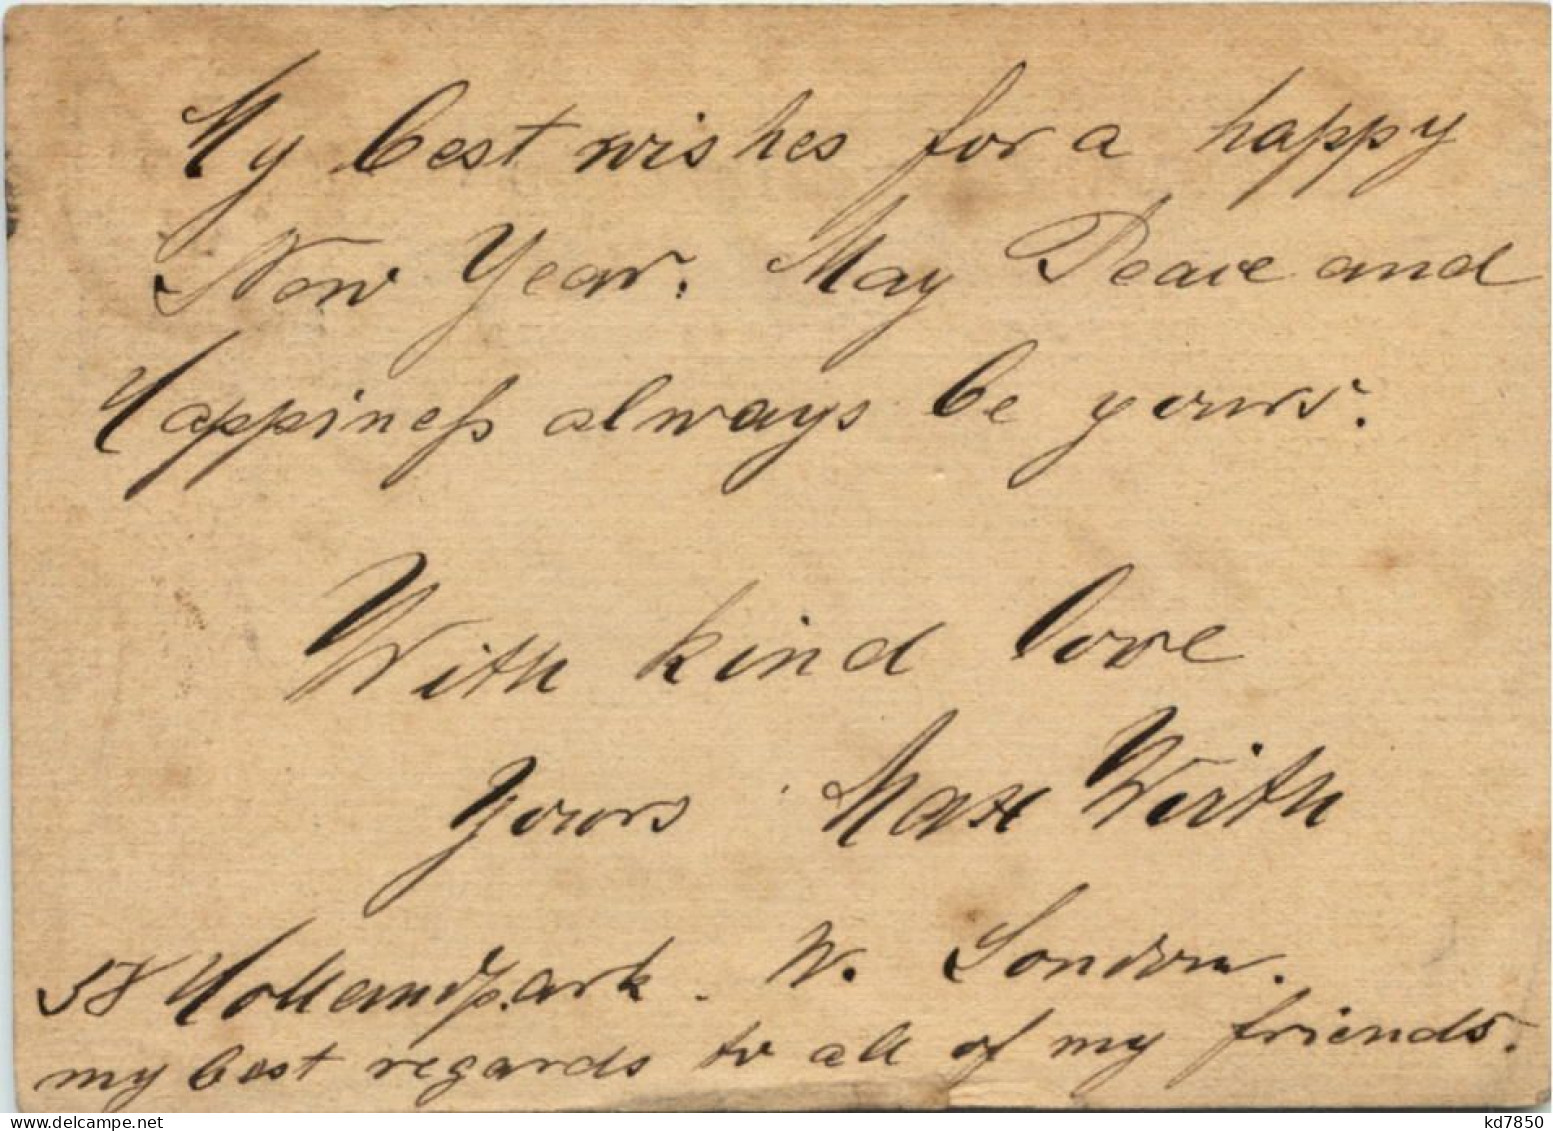 My best wishes for a happy
New Year. May Peace and
Happineſs always be yours.
With kind love
Yours Max Wirth
58 Hollandpark. W. London.
my best regards to all of my friends.
www.delcampe.net
kd7850